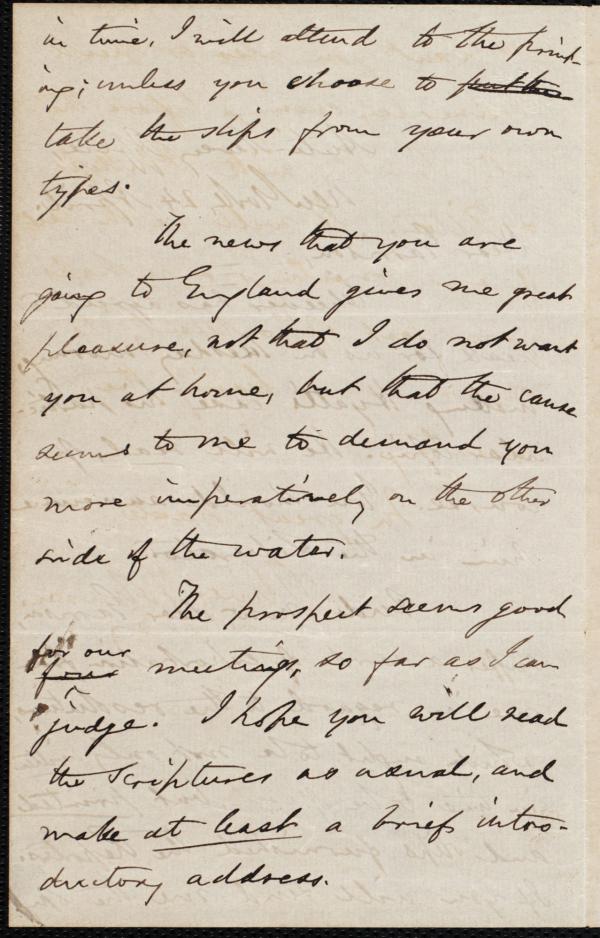 in time, I will attend to the print-
ing; unless you choose to
take the slips from your own
types.
The news that you are
going to England gives me great
pleasure, not that I do not want
you at home, but that the cause
seems to me to demand you
more imperatively on the other
side of the water.
The prospect seems good
for our
four meeting, so far as I can
judge. I hope you will read
the Scriptures as usual, and
make at least a brief intro-
ductory address.